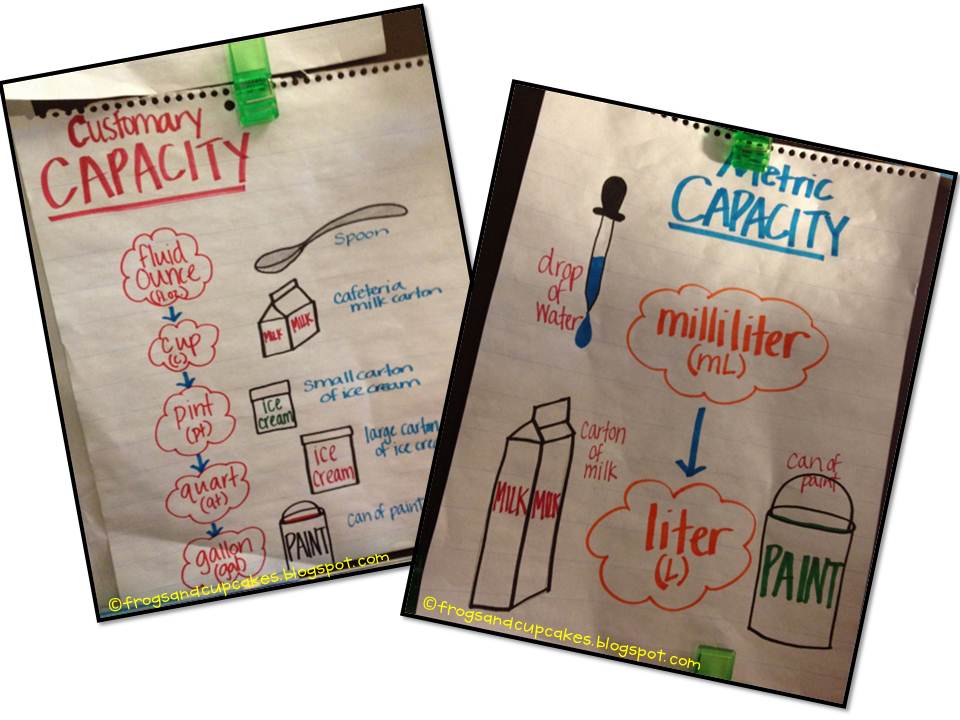 Customary
CAPACITY
fluid
ounce
(fl.oz)
Spoon
cup
(c)
cafeteria
milk carton
MILK MILK
pint
(pt)
small carton
of ice cream
ice
cream
quart
(qt)
large carton
of ice crea
ice
cream
gallon
(gal)
can of paint
PAINT
©frogsandcupcakes.blogspot.com
Metric
CAPACITY
drop
of
water
milliliter
(mL)
carton
of
milk
MILK MILK
liter
(L)
can of
paint
PAINT
©frogsandcupcakes.blogspot.com